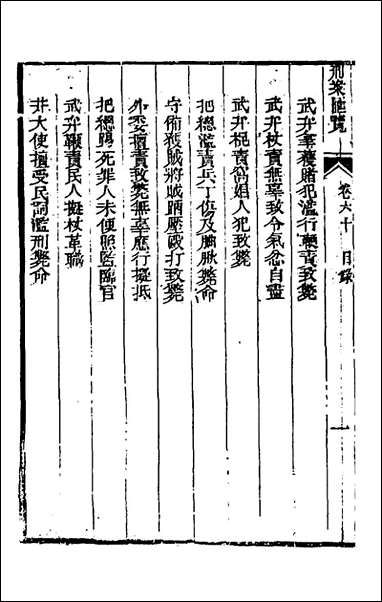 刑案匯覽 卷六十 目錄 一
武弁拏獲賭犯濫行鞭責致斃
武弁杖責無辜致令氣忿自盡
武弁棍責窩娼人犯致斃
把總濫責兵丁傷及臁肕斃命
守備獲賊將賊踊壓毆打致斃
外委擅責致斃無辜應行擬抵
把總賜死罪人未便照監臨官
武弁鞭責民人擬杖革職
弁大使擅受民詞濫刑斃命